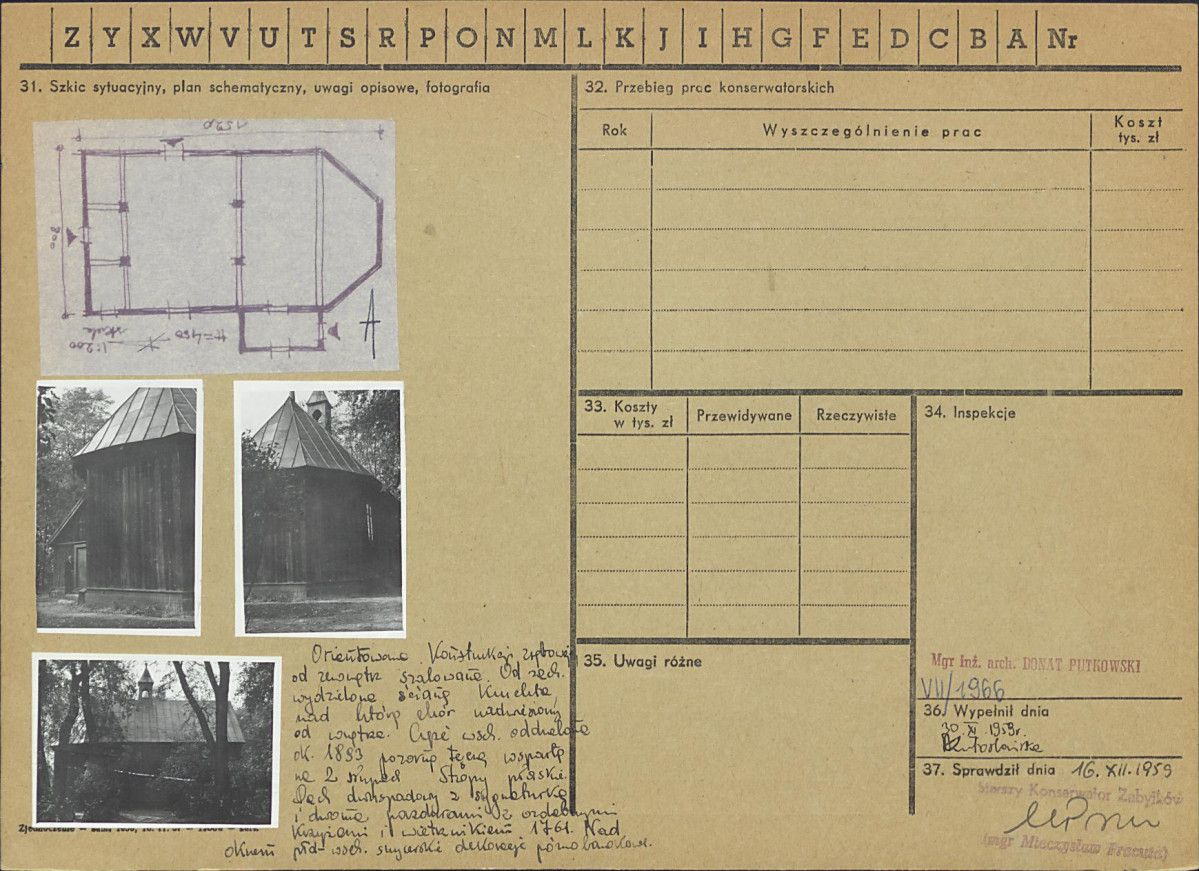 Z Y X W V U T S R P O N M L K J I H G F E D C B A Nr
31. Szkic sytuacyjny, plan schematyczny, uwagi opisowe, fotografia
1590
800
H=450
skala
1:200
Orientowana. Konstrukcji zrębowej
od zewnątrz szalowana. Od zach.
wydzielona ścianą kruchta,
nad którą chór nadwieszony
od wnętrza. Część wsch. oddzielona
ok. 1893 pozorną tęczą wspartą
na 2 słupach. Stropy płaskie.
Dach dwuspadowy z sygnaturką
i dwoma pazdurami z ozdobnymi
krzyżami i wietrznikiem 1761. Nad
oknem płd-wsch. snycerskie dekoracje późnobarokowe.
32. Przebieg prac konserwatorskich
Rok
Wyszczególnienie prac
Koszt
tys. zł
33. Koszty
w tys. zł
Przewidywane
Rzeczywiste
34. Inspekcje
Mgr inż. arch. DONAT PUTKOWSKI
VII/1966
35. Uwagi różne
36. Wypełnił dnia
30 XI. 1959r.
37. Sprawdził dnia 16. XII. 1959
Starszy Konserwator Zabytków
(mgr Mieczysław Fracuta)